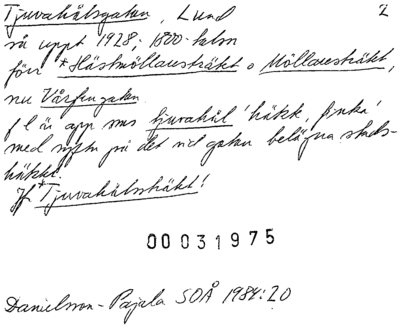 Tjuvahålsgatan, Lund 2
så uppt 1928; 1800-talen
förr *Hästmöllaresträkt o Möllaresträkt,
nu Vårfrugatan.
f l är app sms tjuvahål 'häkte, finka'
med syftn på det vid gatan belägna stads-
häktet.
Jf *Tjuvahålsträkt!
00031975
Danielsson-Pajala SOÅ 1984:20